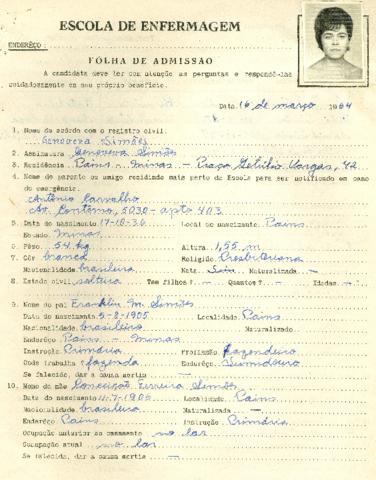 ESCOLA DE ENFERMAGEM
ENDERÊÇO:
FÔLHA DE ADMISSÃO
A candidata deve ler com atenção as perguntas e respondê-las
cuidadosamente em seu próprio benefício.
Data 16 de março 1964
1. Nome de acordo com o registro civil:
Genovera Simões
2. Assinatura Genovera Simões
3. Residência Pains - Minas - Praça Getúlio Vargas, 42
4. Nome do parente ou amigo residindo mais perto da Escola para ser notificado em caso
de emergência.
Antônio Carvalho
Av. Contorno, 5030 - apto 403
5. Data do nascimento 17-10-36 Local do nascimento Pains
Estado Minas
6. Pêso: 54 kg Altura 1,55 m
7. Côr branca Religião Presbiteriana
Nacionalidade brasileira Nata Sim Naturalizada —
8. Estado civil solteira Tem filhos? — Quantos? — Idades —
9. Nome do pai Franklin M. Simões
Data do nascimento 5-8-1905 Localidade Pains
Nacionalidade brasileiro Naturalizado
Enderêço Pains - Minas
Instrução Primária Profissão fazendeiro
Onde trabalha? fazenda Enderêço
Se falecido, dar a causa mortis —
10. Nome da mãe Conceição Ferreira Simões
Data do nascimento 11-7-1906 Localidade Pains
Nacionalidade brasileira Naturalizada —
Enderêço Pains Instrução Primária
Ocupação anterior ao casamento no lar
Ocupação atual no lar
Se falecida, dar a causa mortis —